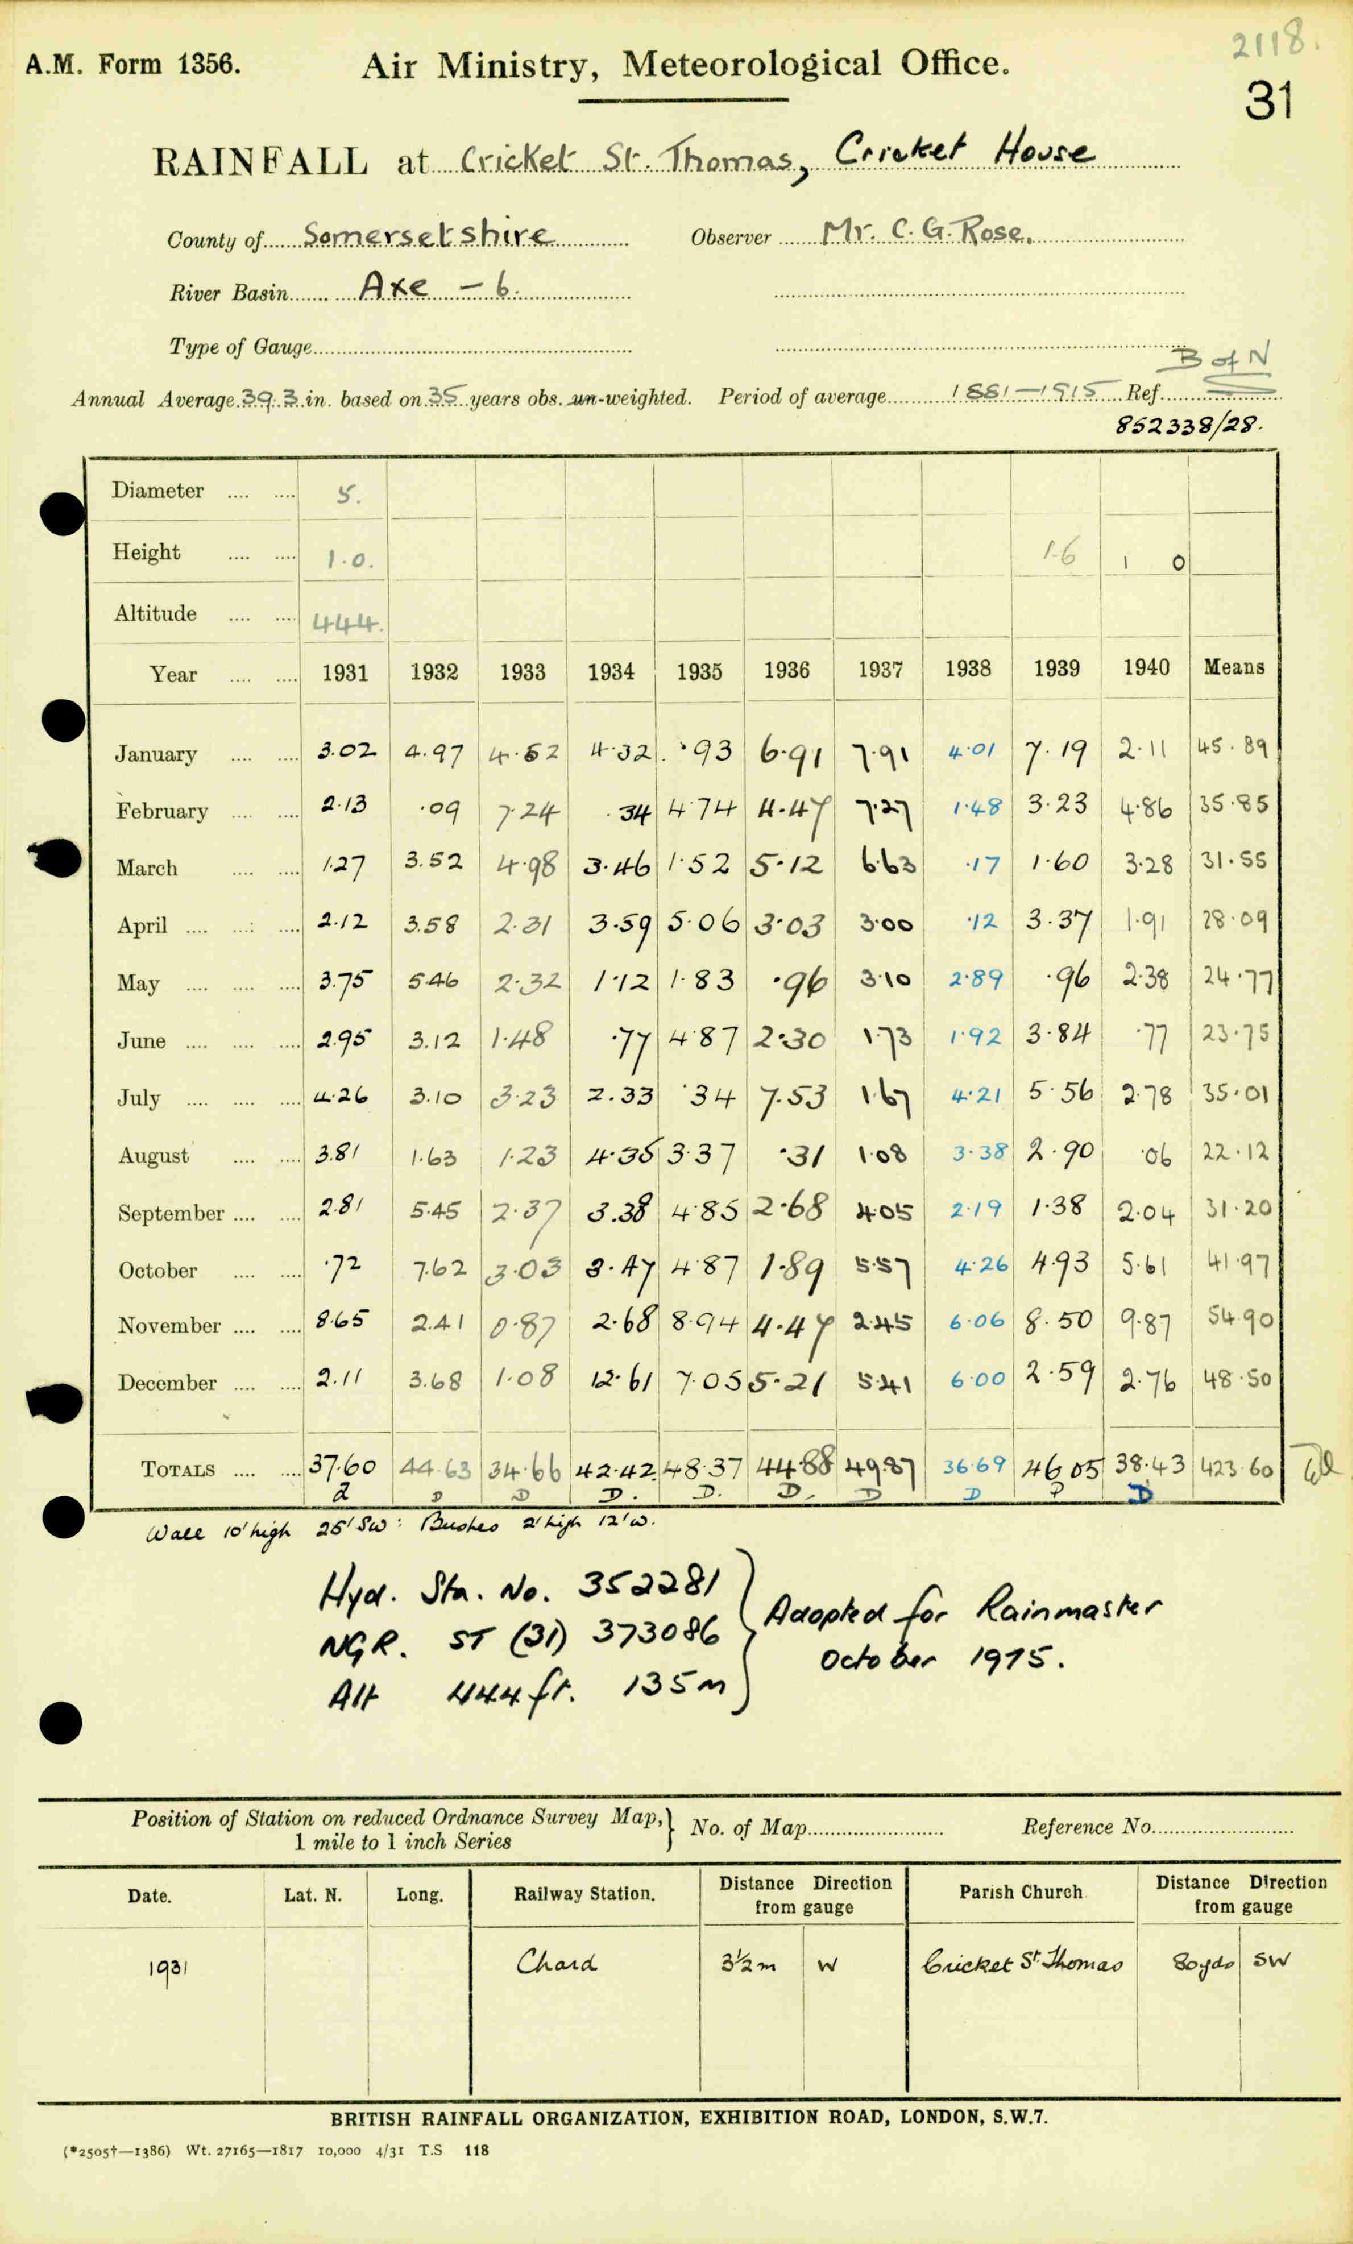 2118.
A.M. Form 1356. Air Ministry, Meteorological Office.
31
RAINFALL at Cricket St. Thomas, Cricket House
County of Somersetshire Observer Mr. C. G. Rose.
River Basin Axe - 6.
Type of Gauge
B of N
Annual Average 39.3 in. based on 35 years obs. un-weighted. Period of average 1881-1915 Ref.
852338/28.
Diameter 5.
Height 1.0. 1.6 1 0
Altitude 444.
Year 1931 1932 1933 1934 1935 1936 1937 1938 1939 1940 Means
January 3.02 4.97 4.52 4.32 .93 6.91 7.91 4.01 7.19 2.11 45.89
February 2.13 .09 7.24 .34 4.74 4.47 7.27 1.48 3.23 4.86 35.85
March 1.27 3.52 4.98 3.46 1.52 5.12 6.63 .17 1.60 3.28 31.55
April 2.12 3.58 2.31 3.59 5.06 3.03 3.00 .12 3.37 1.91 28.09
May 3.75 5.46 2.32 1.12 1.83 .96 3.10 2.89 .96 2.38 24.77
June 2.95 3.12 1.48 .77 4.87 2.30 1.73 1.92 3.84 .77 23.75
July 4.26 3.10 3.23 2.33 .34 7.53 1.67 4.21 5.56 2.78 35.01
August 3.81 1.63 1.23 4.35 3.37 .31 1.08 3.38 2.90 .06 22.12
September 2.81 5.45 2.37 3.38 4.85 2.68 4.05 2.19 1.38 2.04 31.20
October .72 7.62 3.03 3.47 4.87 1.89 5.57 4.26 4.93 5.61 41.97
November 8.65 2.41 0.87 2.68 8.94 4.47 2.45 6.06 8.50 9.87 54.90
December 2.11 3.68 1.08 12.61 7.05 5.21 5.41 6.00 2.59 2.76 48.50
TOTALS 37.60 44.63 34.66 42.42 48.37 44.88 49.87 36.69 46.05 38.43 423.60
D D D. D. D. D D D D
Wall 10' high 25' SW: Bushes 2' high 12' W.
Hyd. Sta. No. 352281
NGR. ST (31) 373086
Alt 444 ft. 135m
Adopted for Rainmaster
October 1975.
Position of Station on reduced Ordnance Survey Map, 1 mile to 1 inch Series No. of Map Reference No.
Date. Lat. N. Long. Railway Station. Distance Direction from gauge Parish Church Distance Direction from gauge
1931 Chard 3½m W Cricket St Thomas 80yds SW
BRITISH RAINFALL ORGANIZATION, EXHIBITION ROAD, LONDON, S.W.7.
(*2505†—1386) Wt. 27165—1817 10,000 4/31 T.S 118